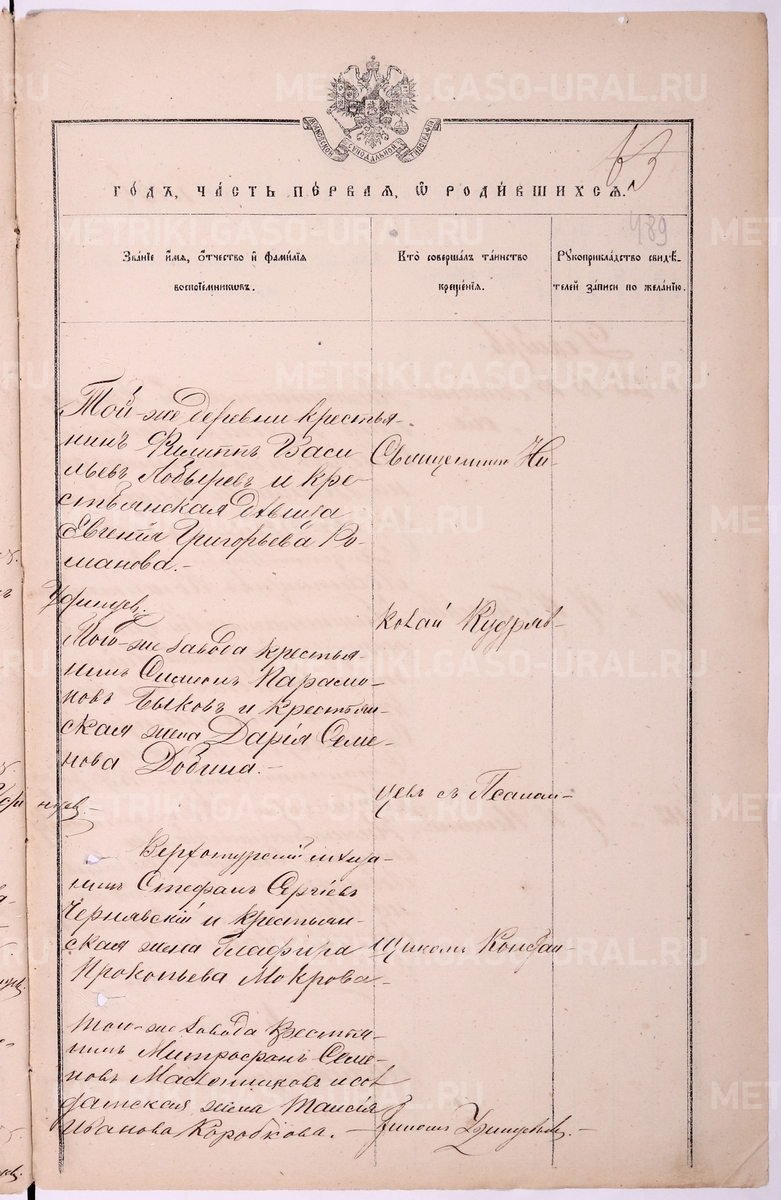 МОСКОВСКОЙ СУНОДАЛЬНОЙ ТИПОГРАФІИ
63
ГОДЪ, ЧАСТЬ ПЕРВАЯ, Ѿ РОДИВШИХСЯ.
489
Званіе имя, отчество и фамилія
воспріемниковъ.
Кто совершалъ таинство
крещенія.
Рукоприкладство свидѣ-
телей записи по желанію.
Той-же деревни крестья-
нинъ Филиппъ Васи-
льевъ Лобыревъ и кре-
стьянская дѣвица
Евгенія Григорьева Ро-
манова.-
Того-же завода крестья-
нинъ Симеонъ Парамо-
новъ Быковъ и крестьян-
ская жена Дарія Семе-
нова Добина.-
Верхотурскій мѣща-
нинъ Стефанъ Сергіевъ
Чернявскій и крестьян-
ская жена Глафира
Прокопьева Мокрова-
того-же завода Крестья-
нинъ Митрофанъ Семе-
новъ Масленниковъ и сол
датская жена Таисія
Иванова Коробкова.-
Священникъ Ни-
колай Кудряв-
цевъ съ Псалом-
щикомъ Констан-
METRIKI.GASO-URAL.RU